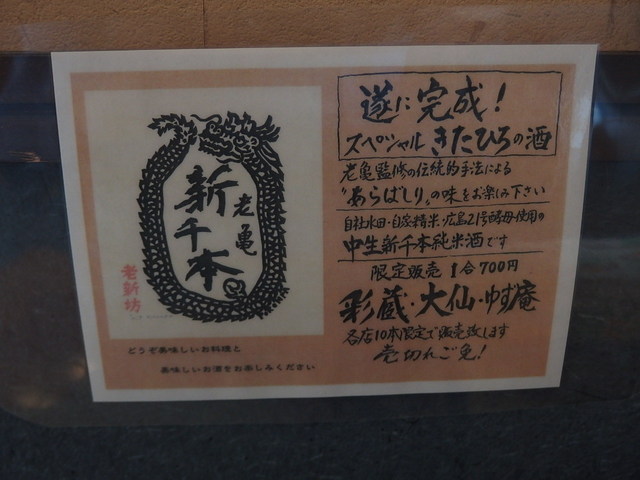 新千本
老亀
老新坊
どうぞ美味しいお料理と
美味しいお酒をお楽しみください
遂に完成!
スペシャルきたひろの酒
老亀監修の伝統的手法による
"あらばしり"の味をお楽しみ下さい
自社水田・自家精米・広島21号酵母・使用の
中生新千本純米酒です
限定販売 1合700円
彩蔵・大仙・ゆず庵
各店10本限定で販売致します
売切れご免!